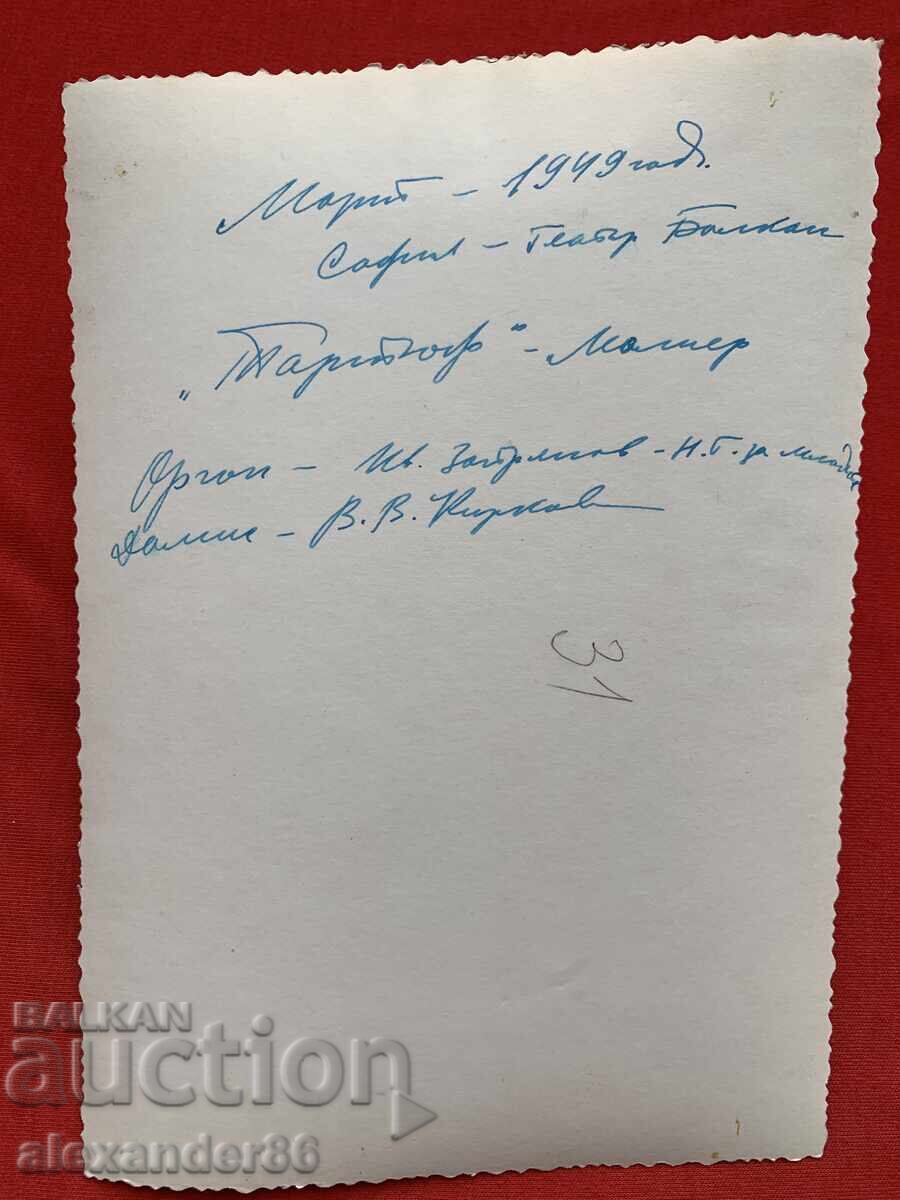 Март - 1949 год.
София - Театър Балкан
„Тартюф" - Молиер
Оргон - Ив. - Н.Т. за младежта
Дамис - В. В. Кирков
31
BALKAN
auction
alexander86